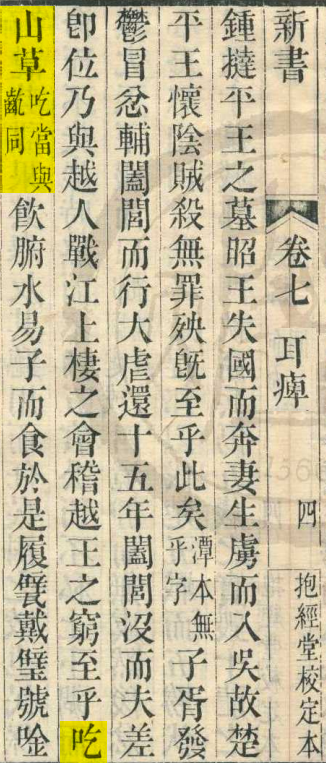 新書 卷七 耳痺 四 抱經堂校定本
鍾撻平王之墓昭王失國而奔妻生虜而入吳故楚
平王懷陰賊殺無罪殃旣至乎此矣潭本無乎字子胥發
鬱冒忿輔闔閭而行大虐還十五年闔閭沒而夫差
卽位乃與越人戰江上棲之會稽越王之窮至乎吃
山草吃當與齕同飮腑水易子而食於是履甓戴璧號唫